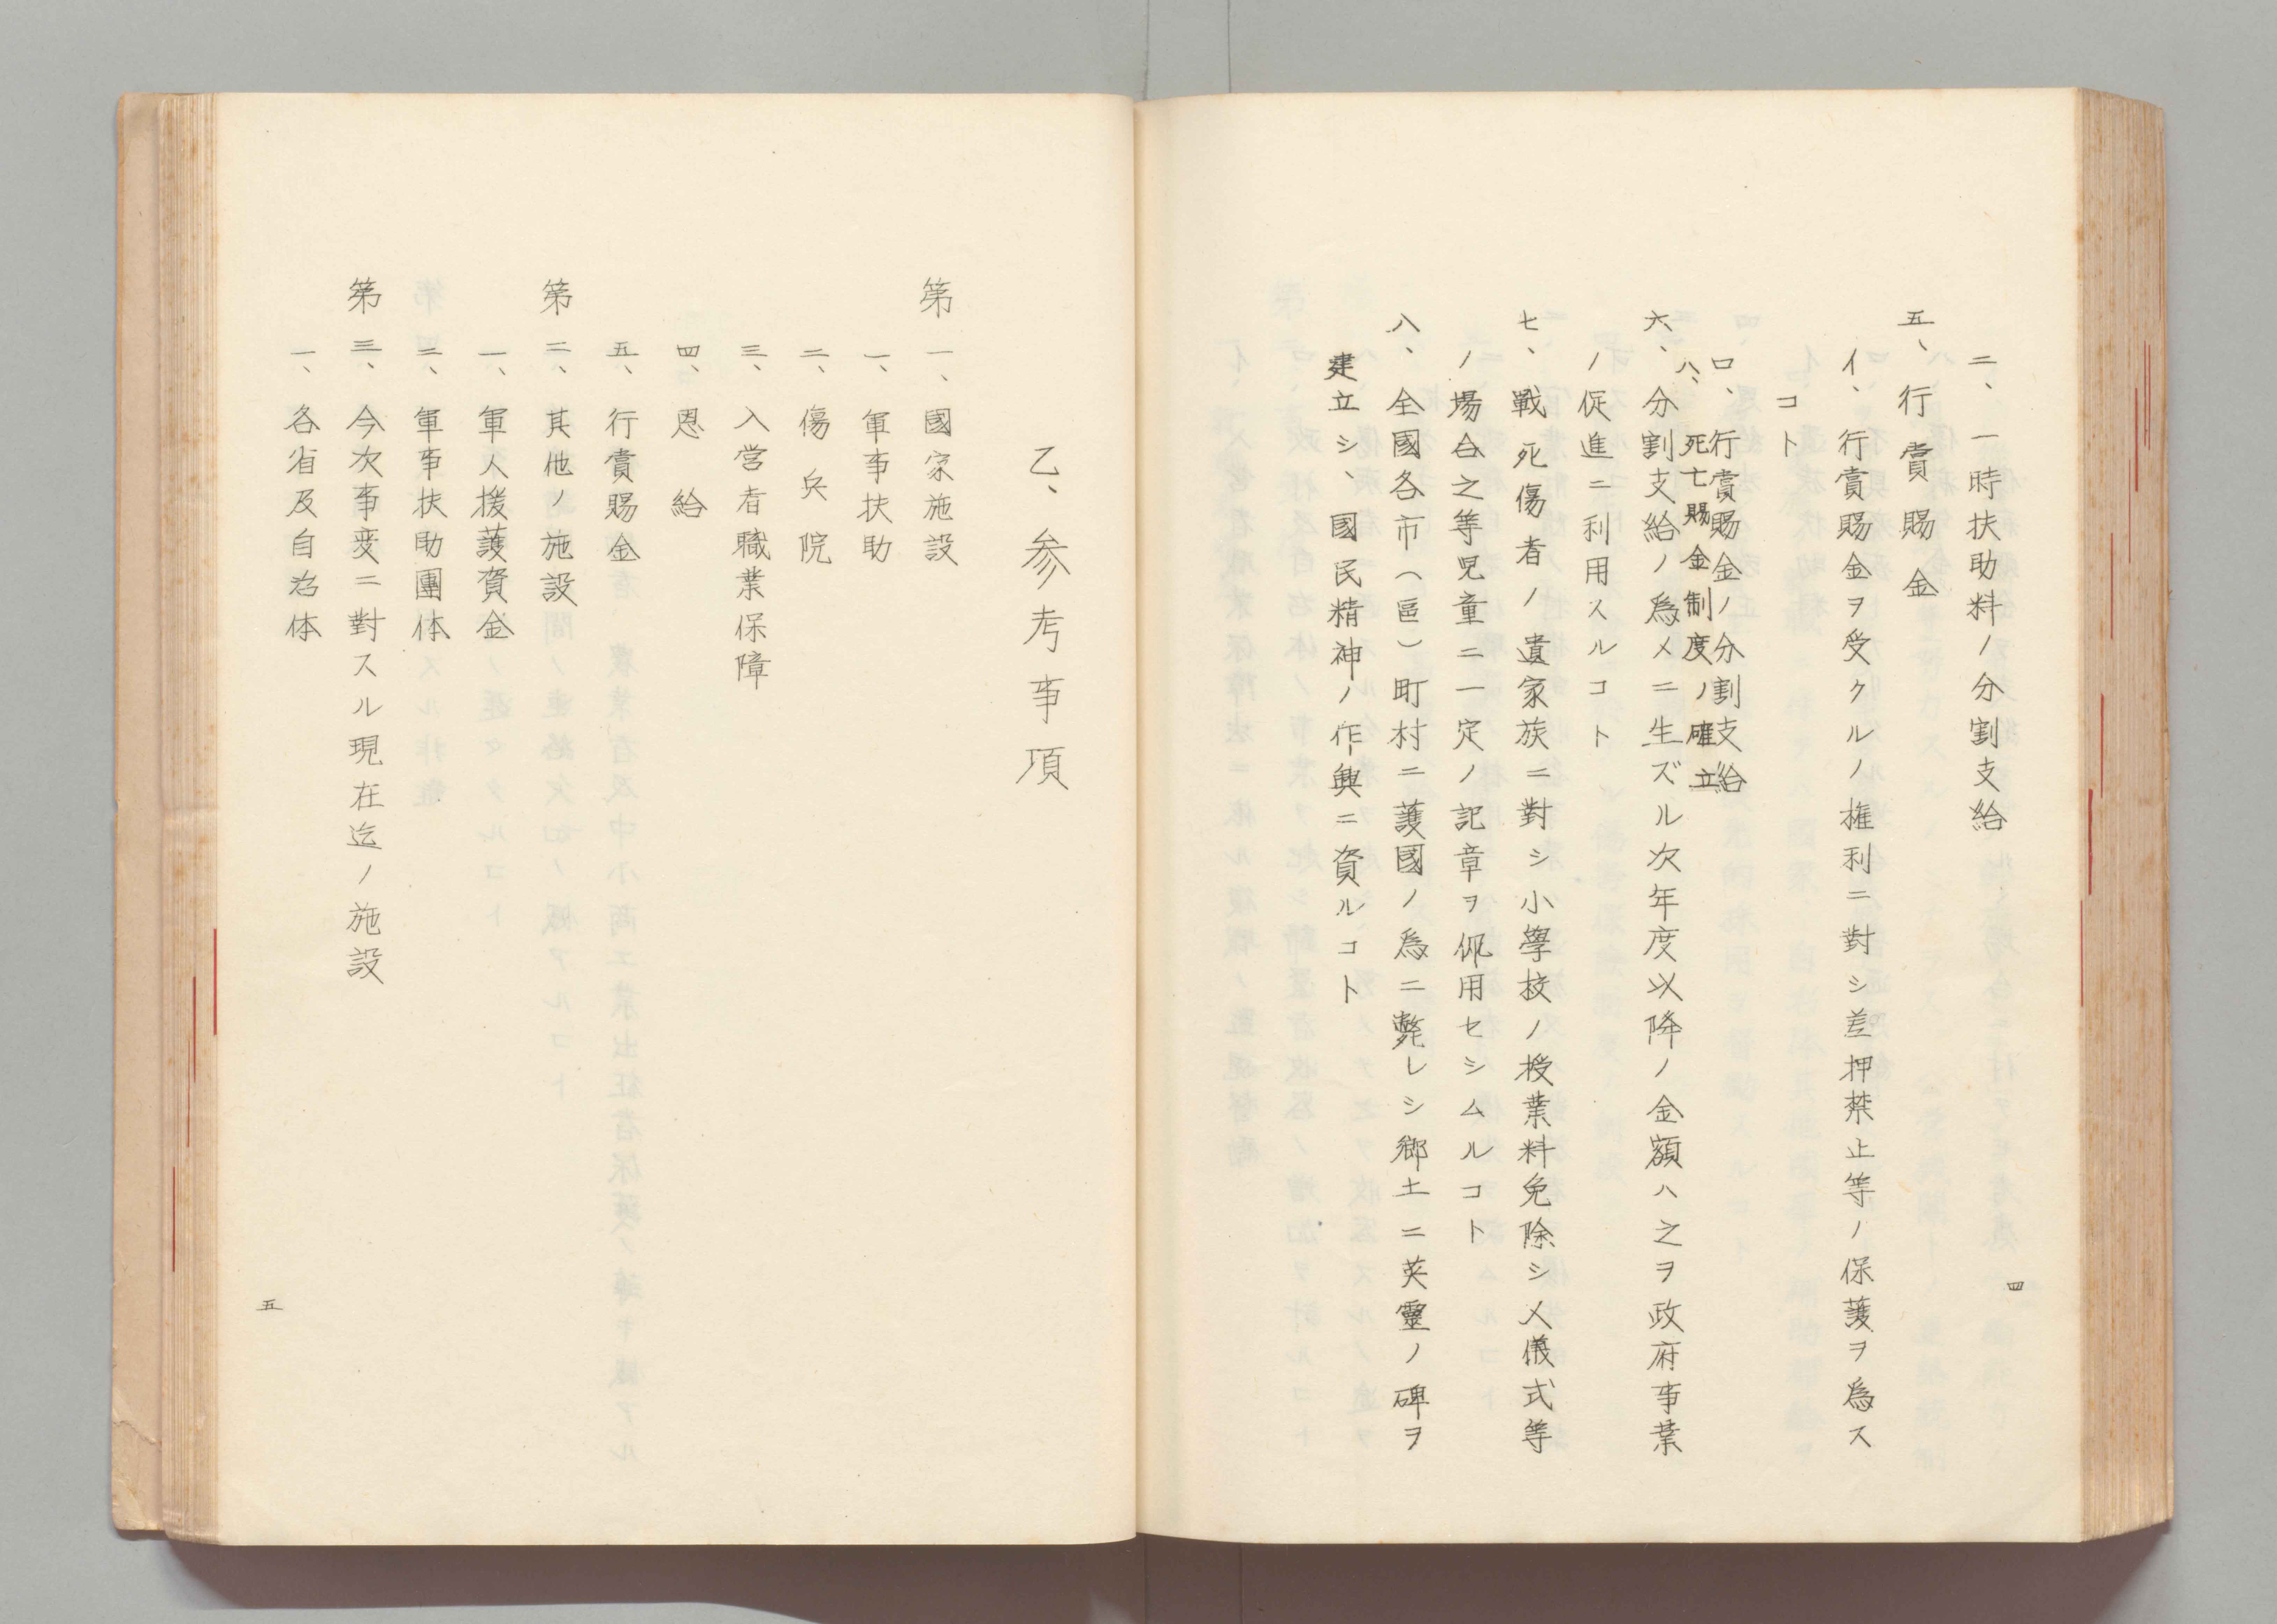 ニ、一時扶助料ノ分割支給
五、行賞賜金
イ、行賞賜金ヲ受クルノ権利ニ對シ差押禁止等ノ保護ヲ為ス
コト
ロ、行賞賜金ノ分割支給
ハ、死亡賜金制度ノ確立
六、分割支給ノ為メニ生ズル次年度以降ノ金額ハ之ヲ政府事業
ノ促進ニ利用スルコト
七、戦死傷者ノ遺家族ニ對シ小學校ノ授業料免除シ又儀式等
ノ場合之等児童ニ一定ノ記章ヲ佩用セシムルコト
八、全國各市(區)町村ニ護國ノ為ニ斃レシ郷土ニ英靈ノ碑ヲ
建立シ、國民精神ノ作興ニ資ルコト
四
乙、参考事項
第一、國家施設
一、軍事扶助
二、傷兵院
三、入営者職業保障
四、恩給
五、行賞賜金
第二、其他ノ施設
一、軍人援護資金
二、軍事扶助團体
第三、今次事変ニ對スル現在迄ノ施設
一、各省及自治体
五